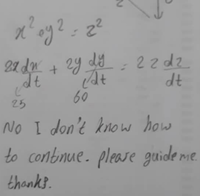 2
x² o y² = z²
2x dx/dt + 2y dy/dt = 2 z dz/dt
25 60
No I don't know how
to continue. please guide me
thanks.